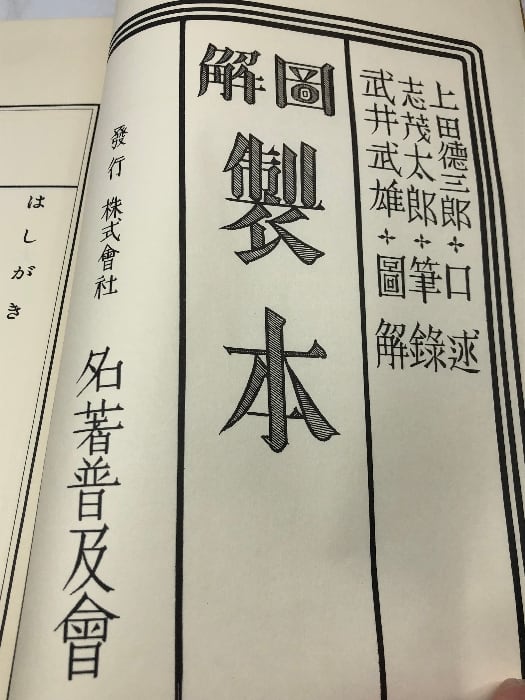 上田德三郎✢口述
志茂太郎✢筆錄
武井武雄✢圖解
圖解
製本
發行 株式會社
名著普及會
はしがき